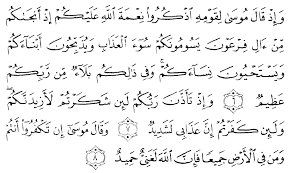 وَإِذْ قَالَ مُوسَىٰ لِقَوْمِهِ ٱذْكُرُوا۟ نِعْمَةَ ٱللَّهِ عَلَيْكُمْ إِذْ أَنجَىٰكُم
مِّنْ ءَالِ فِرْعَوْنَ يَسُومُونَكُمْ سُوٓءَ ٱلْعَذَابِ وَيُذَبِّحُونَ أَبْنَآءَكُمْ
وَيَسْتَحْيُونَ نِسَآءَكُمْ ۚ وَفِى ذَٰلِكُم بَلَآءٌ مِّن رَّبِّكُمْ
عَظِيمٌ ٦ وَإِذْ تَأَذَّنَ رَبُّكُمْ لَئِن شَكَرْتُمْ لَأَزِيدَنَّكُمْ ۖ
وَلَئِن كَفَرْتُمْ إِنَّ عَذَابِى لَشَدِيدٌ ٧ وَقَالَ مُوسَىٰٓ إِن تَكْفُرُوٓا۟ أَنتُمْ
وَمَن فِى ٱلْأَرْضِ جَمِيعًا فَإِنَّ ٱللَّهَ لَغَنِىٌّ حَمِيدٌ ٨